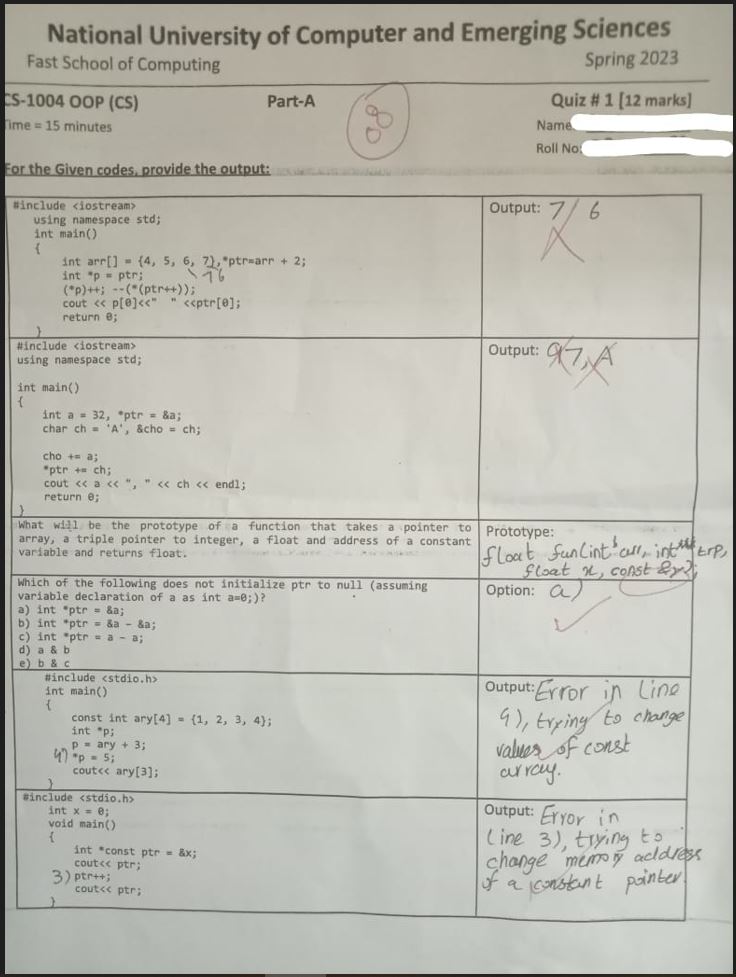 National University of Computer and Emerging Sciences
Fast School of Computing
Spring 2023
CS-1004 OOP (CS)
Part-A
08
Quiz # 1 [12 marks]
Time = 15 minutes
Name
Roll No:
For the Given codes, provide the output:
#include <iostream>
using namespace std;
int main()
{
int arr[] = {4, 5, 6, 7},*ptr=arr + 2;
int *p = ptr;
76
(*p)++; --(*(ptr++));
cout << p[0]<<" " <<ptr[0];
return 0;
}
Output: 7/ 6
#include <iostream>
using namespace std;
int main()
{
int a = 32, *ptr = &a;
char ch = 'A', &cho = ch;
cho += a;
*ptr += ch;
cout << a << ", " << ch << endl;
return 0;
}
Output: 97, A
What will be the prototype of a function that takes a pointer to
array, a triple pointer to integer, a float and address of a constant
variable and returns float.
Prototype:
float fun(int* arr, int*** trp,
float x, const &y);
Which of the following does not initialize ptr to null (assuming
variable declaration of a as int a=0;)?
a) int *ptr = &a;
b) int *ptr = &a - &a;
c) int *ptr = a - a;
d) a & b
e) b & c
Option: a)
#include <stdio.h>
int main()
{
const int ary[4] = {1, 2, 3, 4};
int *p;
p = ary + 3;
4) *p = 5;
cout<< ary[3];
}
Output: Error in line
4), trying to change
values of const
array.
#include <stdio.h>
int x = 0;
void main()
{
int *const ptr = &x;
cout<< ptr;
3) ptr++;
cout<< ptr;
}
Output: Error in
line 3), trying to
change memory address
of a constant pointer.